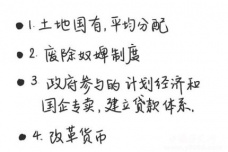 • 1. 土地国有,平均分配
• 2. 废除奴婢制度
• 3 政府参与的计划经济和
国企专卖,建立贷款体系.
• 4. 改革货币